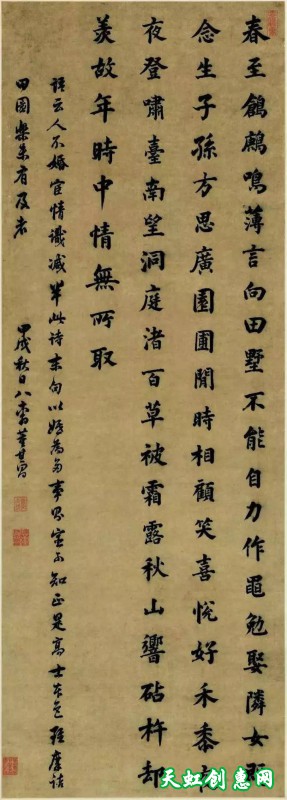 春至鶬鶊鳴薄言向田墅不能自力作黽勉娶隣女既
念生子孫方思廣園圃閒時相顧笑喜悅好禾黍夜
夜登嘯臺南望洞庭渚百草被霜露秋山響砧杵却
羨故年時中情無所取
語云人不婚宦情識减半此詩末句以婚為多事宦不知正是高士本色摩詰
田園樂未有及者
甲戌秋日八十翁董其昌
天虹创惠网